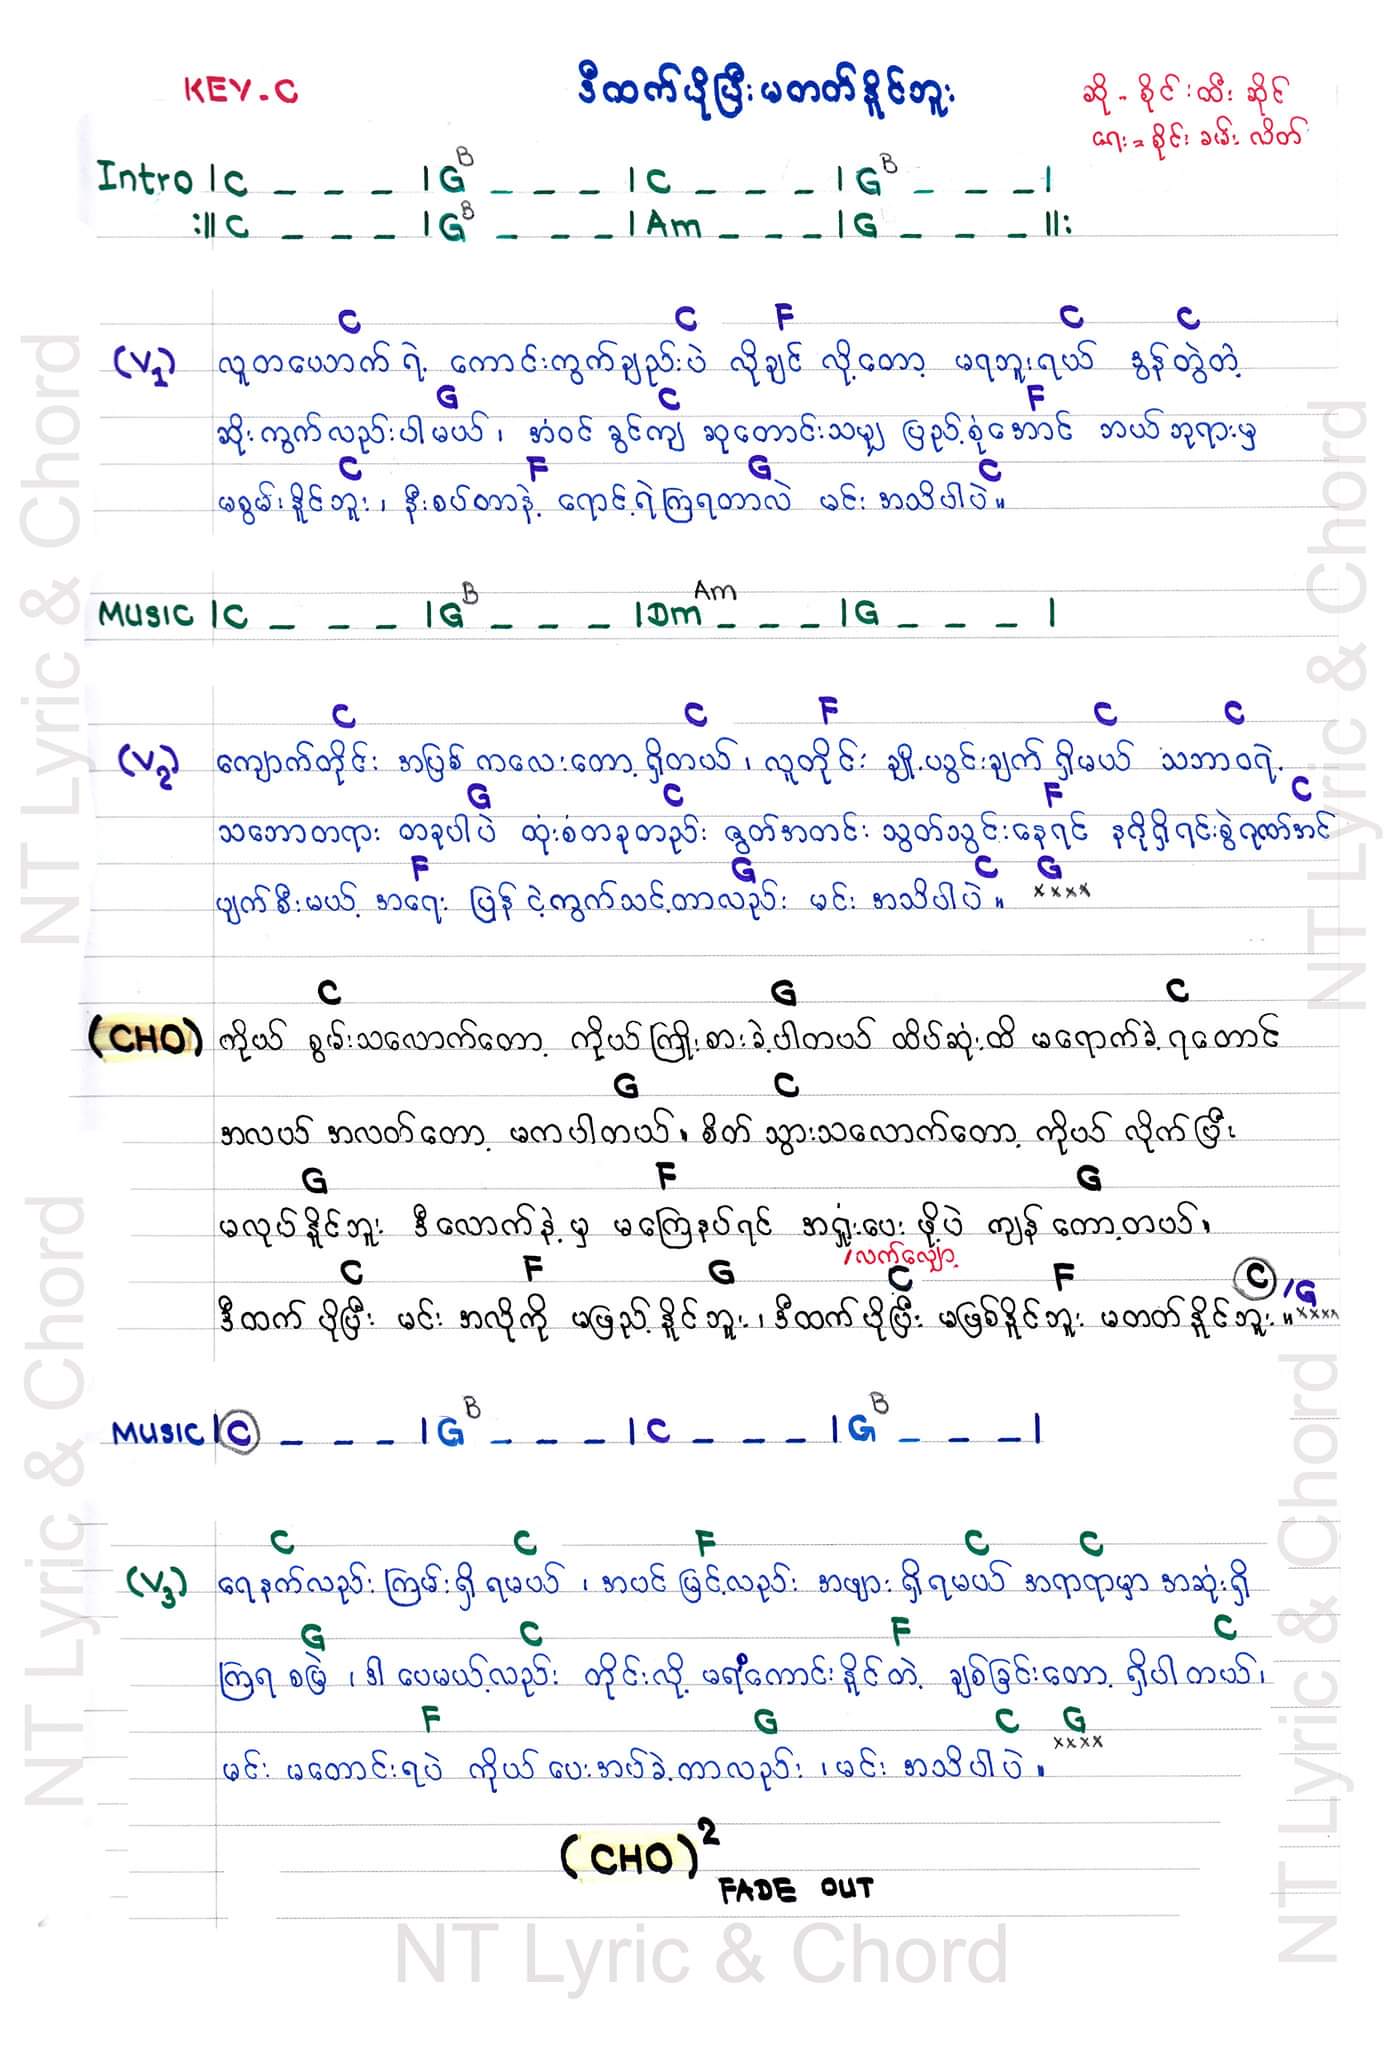 KEY-C
ဒီထက်ပိုပြီးမတတ်နိုင်ဘူး
ဆို - စိုင်းထီးဆိုင်
ရေး = စိုင်းခမ်းလိတ်
Intro |C _ _ _ |G B _ _ _ |C _ _ _ |G B _ _ _|
:||C _ _ _ |G B _ _ _ |Am _ _ _ |G _ _ _ ||:
C C F C C
(V1) လူတယောက်ရဲ့ ကောင်းကွက်ချည်းပဲ လိုချင်လို့တော့ မရဘူးရယ် ဒွန်တွဲတဲ့
G C F
ဆိုးကွက်လည်းပါမယ်၊ အံဝင်ခွင်ကျ ဆုတောင်းသမျှ ပြည့်စုံအောင် ဘယ်ဘုရားမှ
C F G C
မစွမ်းနိုင်ဘူး၊ နီးစပ်တာနဲ့ ရောင့်ရဲကြရတာလဲ မင်းအသိပါပဲ။
MUSIC |C _ _ _ |G B _ _ _ |Dm Am _ _ _ |G _ _ _ |
C C F C C
(V2) ကျောက်တိုင်း အပြစ်ကလေးတော့ရှိတယ်၊ လူတိုင်း ချို့ယွင်းချက်ရှိမယ် သဘာဝရဲ့
G C F C
သဘောတရား တခုပါပဲ ထုံးစံတခုတည်း ဇွတ်အတင်း သွတ်သွင်းနေရင် နဂိုရှိရင်းစွဲဂုဏ်အင်
F G C G
ပျက်စီးမယ့် အရေး ပြန်ငဲ့ကွက်သင့်တာလည်း မင်းအသိပါပဲ။ xxxx
C G C
(CHO) ကိုယ်စွမ်းသလောက်တော့ ကိုယ်ကြိုးစားခဲ့ပါတယ် ထိပ်ဆုံးထိ မရောက်ခဲ့ရတောင်
G C
အလယ်အလတ်တော့ မကပါတယ်၊ စိတ်သွားသလောက်တော့ ကိုယ်လိုက်ပြီး
G F G
မလုပ်နိုင်ဘူး ဒီလောက်နဲ့မှ မကြေနပ်ရင် အရှုံးပေးဖို့ပဲ ကျန်တော့တယ်၊
/လက်လျှော့
C F G C F C /G
ဒီထက်ပိုပြီး မင်းအလိုကို မဖြည့်နိုင်ဘူး၊ ဒီထက်ပိုပြီး မဖြစ်နိုင်ဘူး မတတ်နိုင်ဘူး။ xxxx
MUSIC |C _ _ _ |G B _ _ _ |C _ _ _ |G B _ _ _|
C C F C C
(V3) ရေနက်လည်း ကြမ်းရှိရမယ်၊ အပင်မြင့်လည်း အဖျားရှိရမယ် အရာရာမှာ အဆုံးရှိ
G C F C
ကြရစမြဲ၊ ဒါပေမယ့်လည်း တိုင်းလို့ မရကောင်းနိုင်တဲ့ ချစ်ခြင်းတော့ ရှိပါတယ်၊
F G C G
xxxx
မင်းမတောင်းရပဲ ကိုယ်ပေးအပ်ခဲ့တာလည်း ၊မင်းအသိပါပဲ။
(CHO)2
FADE OUT
NT Lyric & Chord
NT Lyric & Chord
NT Lyric & Chord
NT Lyric & Chord
NT Lyric & Chord